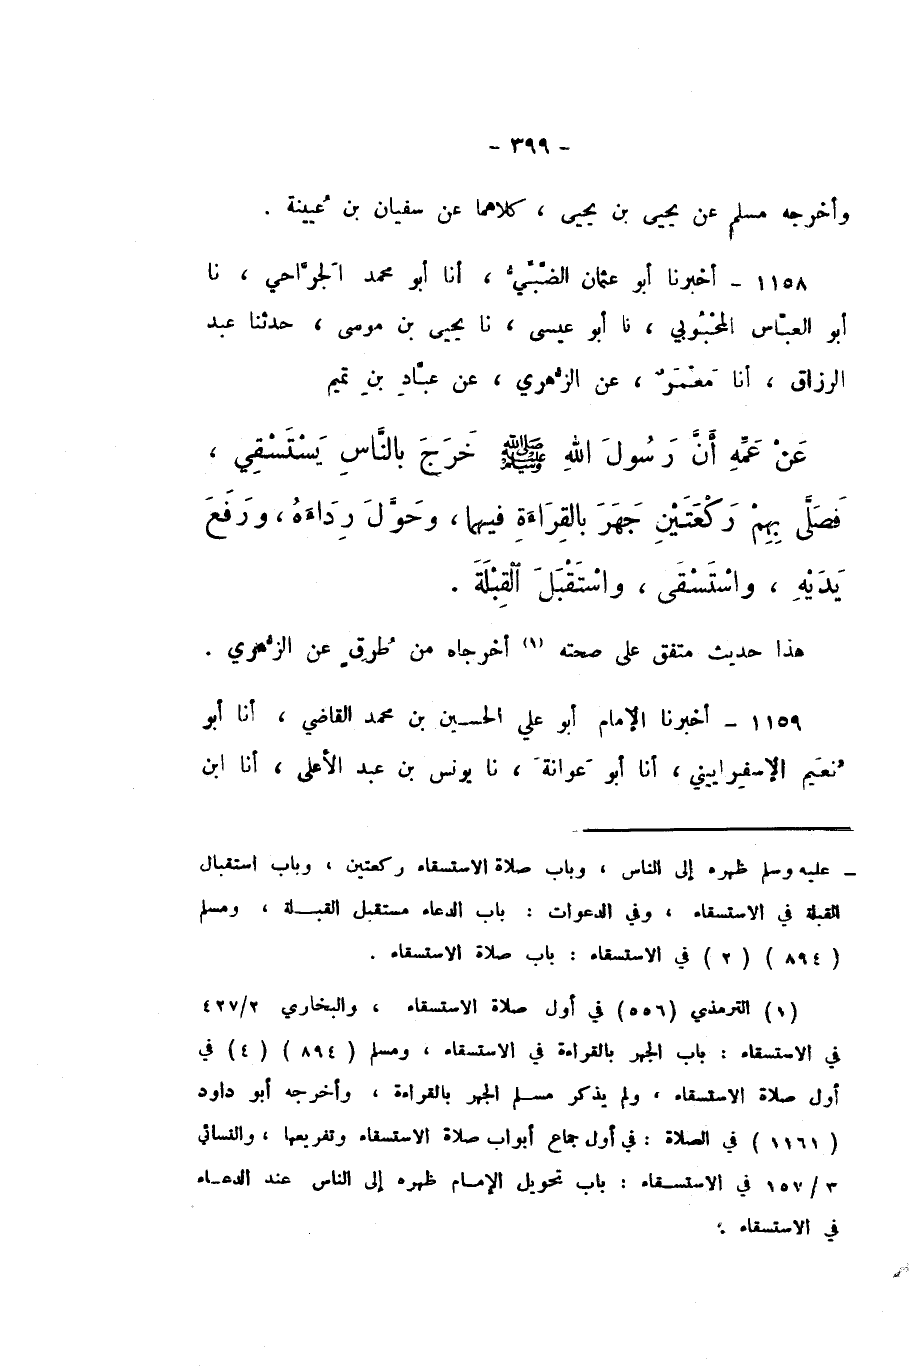 - ٣٩٩ -
وأخرجه مسلم عن يحيى بن يحيى ، كلاهما عن سفيان بن عُيينة .
١١٥٨ - أخبرنا أبو عثمان الضَّبِّيُّ ، أنا أبو محمد الجرَّاحي ، نا
أبو العبّاس المحْبُوبي ، نا أبو عيسى ، نا يحيى بن موسى ، حدثنا عبد
الرزاق ، أنا مَعْمَرٌ ، عن الزُّهري ، عن عبَّادِ بنِ تميم
عَنْ عَمِّهِ أَنَّ رَسُولَ اللهِ ﷺ خَرَجَ بالنَّاسِ يَسْتَسْقِي ،
فَصَلَّى بِهِمْ رَكْعَتَيْنِ جَهَرَ بالقِرَاءَةِ فيها، وحَوَّلَ رِدَاءَهُ ، ورَفَعَ
يَدَيْهِ ، واسْتَسْقَى ، واسْتَقْبَلَ ٱلْقِبْلَةَ .
هذا حديث متفق على صحته (١) أخرجاه من طُرقٍ عن الزُّهري .
١١٥٩ - أخبرنا الإمام أبو علي الحسين بن محمد القاضي ، أنا أبو
نُعَيم الإسفراييني ، أنا أبو عَوانةَ ، نا يونس بن عبد الأعلى ، أنا ابن
ـ عليه وسلم ظهره إلى الناس ، وباب صلاة الاستسقاء ركعتين ، وباب استقبال
القبلة في الاستسقاء ، وفي الدعوات : باب الدعاء مستقبل القبلة ، ومسلم
( ٨٩٤ ) ( ٢ ) في الاستسقاء : باب صلاة الاستسقاء .
(١) الترمذي (٥٥٦) في أول صلاة الاستسقاء ، والبخاري ٤٢٧/٢
في الاستسقاء : باب الجهر بالقراءة في الاستسقاء ، ومسلم ( ٨٩٤ ) (٤) في
أول صلاة الاستسقاء ، ولم يذكر مسلم الجهر بالقراءة ، وأخرجه أبو داود
( ١١٦١ ) في الصلاة : في أول جماع أبواب صلاة الاستسقاء وتفريعها ، والنسائي
٣ / ١٥٧ في الاستسقاء : باب تحويل الإمام ظهره إلى الناس عند الدعاء
في الاستسقاء .